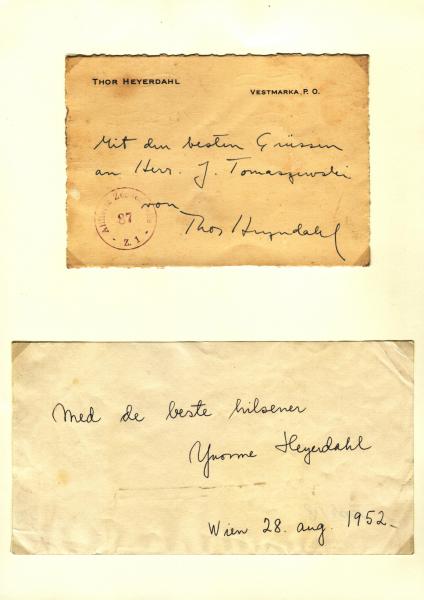 THOR HEYERDAHL
VESTMARKA, P. O.
Mit den besten Grüssen
an Herr. J. Tomaszewski
von
Thor Heyerdahl
87
Z. 1
Med de beste hilsener
Yvonne Heyerdahl
Wien 28. aug. 1952.